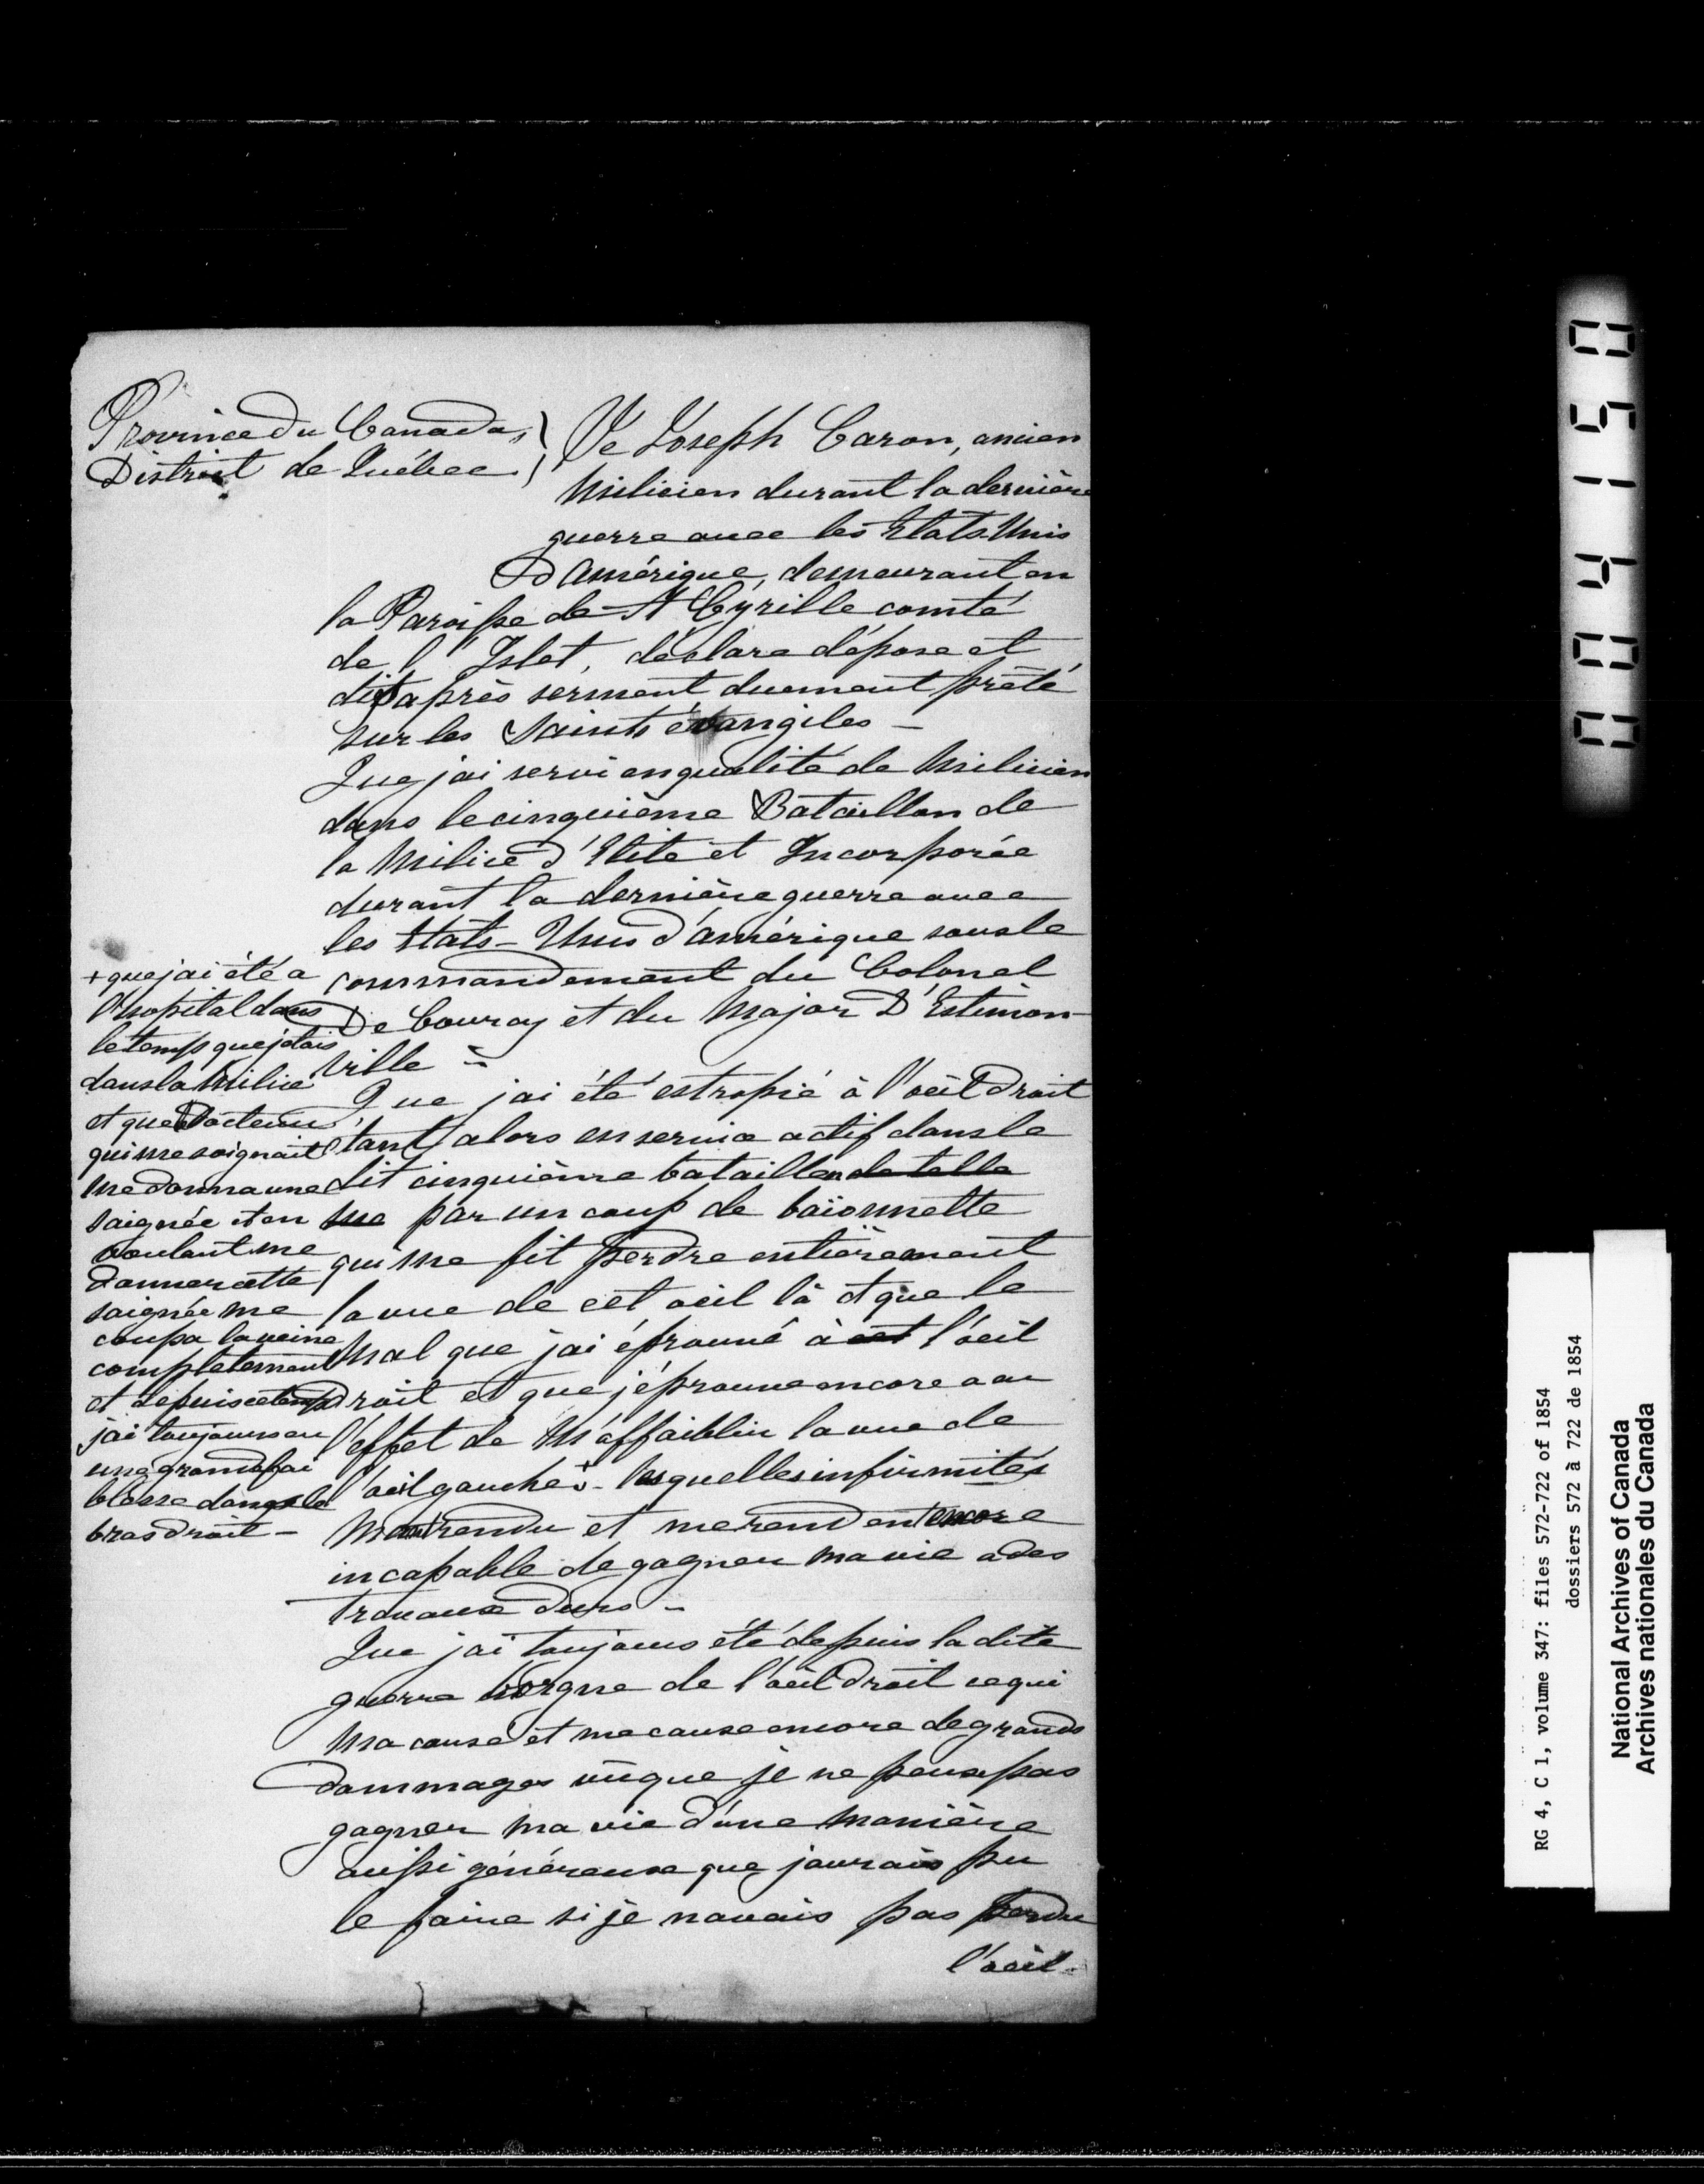 Province du Canada,
District de Québec
Je Joseph Caron, ancien
Milicien durant la dernière
guerre avec les Etats Unis
D'Amérique, demeurant en
la Paroisse de St Cyrille comté
de l'Islet, déclare dépose et
dit après serment duement prêté
sur les Saints évangiles —
Que j'ai servi en qualité de Milicien
dans le cinquième Bataillon de
la Milice d'Elite et Incorporée
durant la dernière guerre avec
les Etats-Unis d'amérique sous le
commandement du Colonel
De Courcy et du Major D'Estimon-
ville =
Que j'ai été estropié à l'oeil droit
étant alors en service actif dans le
dit cinquième bataillon de telle
sue par un coup de baïonnette
qui me fit perdre entièrement
la vue de cet oeil là et que le
Mal que j'ai éprouvé à cet l'oeil
droit et que j'éprouve encore a eu
l'effet de M'affaiblir la vue de
l'oeil gauche + - lesquelles infirmités
M'ont rendu et me rendent encore
incapable de gagner ma vie a des
travaux durs -
Que j'ai toujours été depuis la dite
guerre borgne de l'oeil droit ce qui
Ma causé et me cause encore de grands
dommages vû que je ne peux pas
gagner ma vie d'une manière
aussi généreuse que jaurais pu
le faire si je navais pas perdu
l'oeil -
+ que jai été a
l'hopital dans
le temps que jetais
dans la Milice
et que le Docteur
qui me soignait
me donna une
saignée et en
voulant me
donner cette
saignée me
coupa la veine
completement
et depuis ce temps
j'ai toujours eu
une grande fai
blesse dans le
bras droit -
0 0 4 1 5 0
RG 4, C 1, volume 347: files 572-722 of 1854
dossiers 572 à 722 de 1854
National Archives of Canada
Archives nationales du Canada